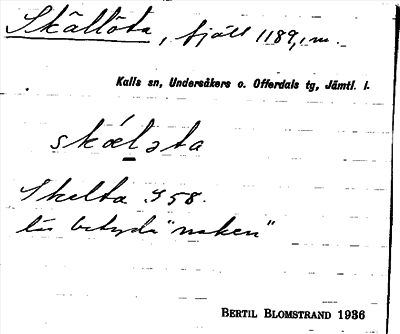 Skällöta, fjäll 1189,1 m.
Kalls sn, Undersåkers o. Offerdals tg, Jämtl. l.
skǽlǝta
Skelta S 58.
lär betyda "naken"
BERTIL BLOMSTRAND 1936